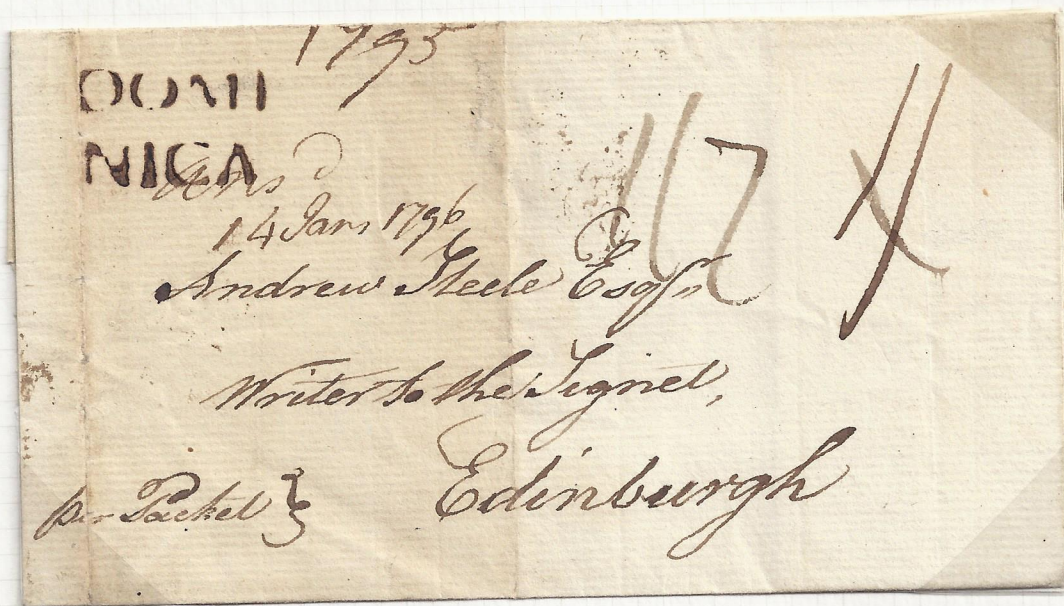 1795
DOMI
NICA
Ansd
14 Jan 1796
Andrew Steele Esqr
Writer to the Signet,
Edinburgh
per Packet